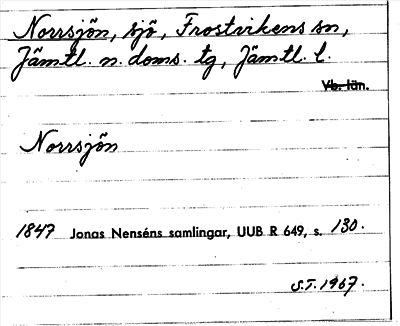 Norrsjön, sjö, Frostvikens sn,
Jämtl. n. doms. tg, Jämtl. l.
Vb. län.
Norrsjön
1847 Jonas Nenséns samlingar, UUB R 649, s. 130.
S.T. 1967.